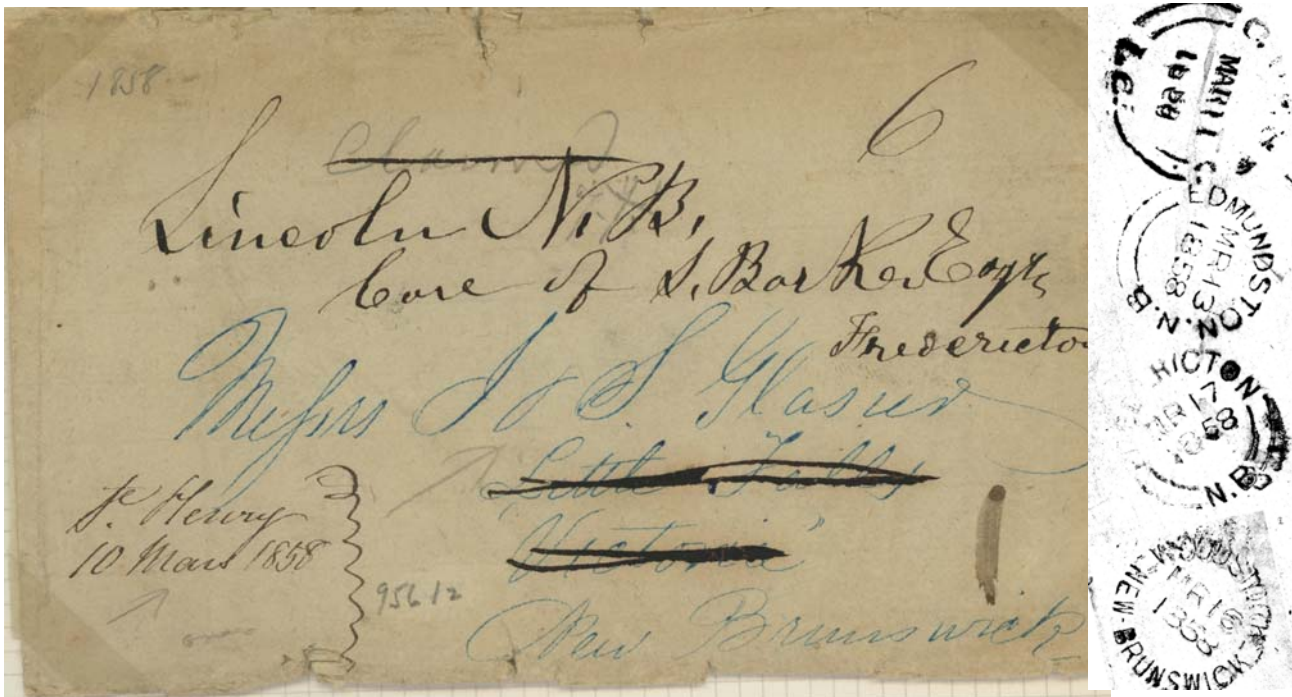 1858
6
Lincoln N.B.
Care of S. Barker Esqr
Fredericton
Messrs J & S Glasier
Little Falls
Victoria
New Brunswick
St. Henry
10 Mars 1858
956 12
MAR 11
L.C.
EDMUNDSTON. N.B
MR 13
1858
RICTON
MR 17
1858
N.B
WOODSTOCK
NEW-BRUNSWICK
MR 16
1858